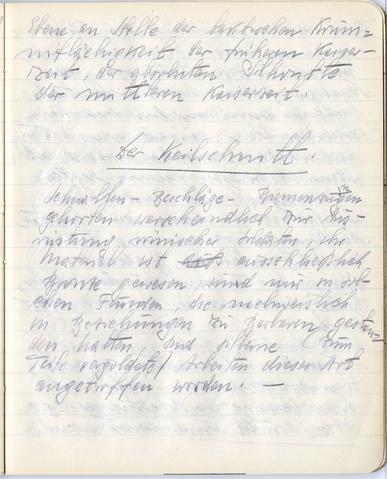 Ebene an Stelle der taktischen Krüm=
mflächigkeit der früheren Kaiser-
zeit, der
der mittleren Kaiserzeit.
Der Keilschnitt.
Schnallen- Beschläge- Riemenzungen
gehörten warscheindlich zur Aus-
rüstung römischer Soldaten, ihr
Material ist ausschließlich
Bronze gewesen, und nur in sol-
chen Funden, die nachweislich
in Beziehungen zu Barbaren gestan=
den hatten, sind silberne (zum
Teil vergoldete) Arbeiten dieser Art
angetroffen worden. —